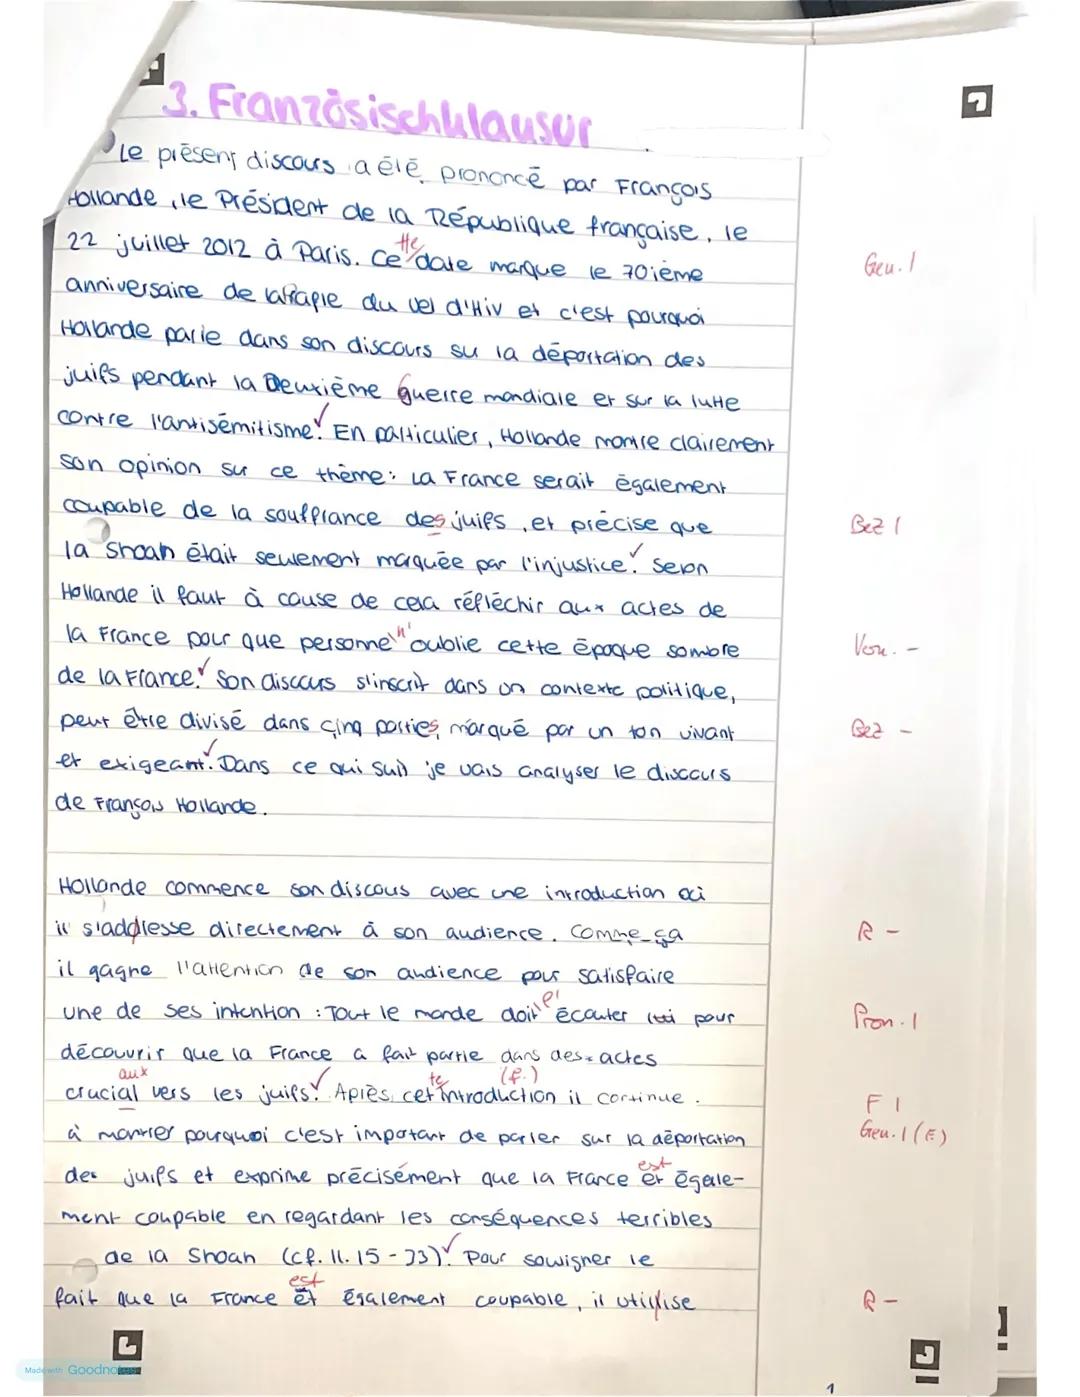 3. Französischklausur
Le présent discours a été prononcé par François
Hollande, le Président de la République française, le
tte
22 juillet 2012 à Paris. Ce date marque le 70ième
Gen. 1
anniversaire de la Rafle du Vel d'Hiv et c'est pourquoi
Hollande parle dans son discours su la déportation des
juifs pendant la Deuxième guerre mondiale et sur la lutte
contre l'antisémitisme. En particulier, Hollande montre clairement
son opinion su ce thème: La France serait également
coupable de la souffrance des juifs, et précise que
Bez 1
la Shoah était seulement marquée par l'injustice. Selon
Hollande il faut à cause de cela réfléchir aux actes de
la France pour que personne n'oublie cette époque sombre
Vern. -
de la France. Son discours s'inscrit dans un contexte politique,
peut être divisé dans cinq parties, marqué par un ton vivant
Bez -
et exigeant. Dans ce qui suit je vais analyser le discours
de François Hollande.
Hollande commence son discous avec une introduction où
il s'addresse directement à son audience. Comme-ça
R -
il gagne l'attention de son audience pour satisfaire
une de ses intention : Tout le monde doit l'écouter pour
Pron. 1
découvrir que la France a fait partie dans des actes
aux te (f.)
crucial vers les juifs. Après cet introduction il continue
F 1
Gen. 1 (E)
à montrer pourquoi c'est impotant de parler sur la déportation
des juifs et exprime précisément que la France et égale-
est
ment coupable en regardant les conséquences terribles
de la Shoah (cf. ll. 15-33). Pour souligner le
est
fait que la France et également coupable, il utilise
R -
Made with Goodnotes
1